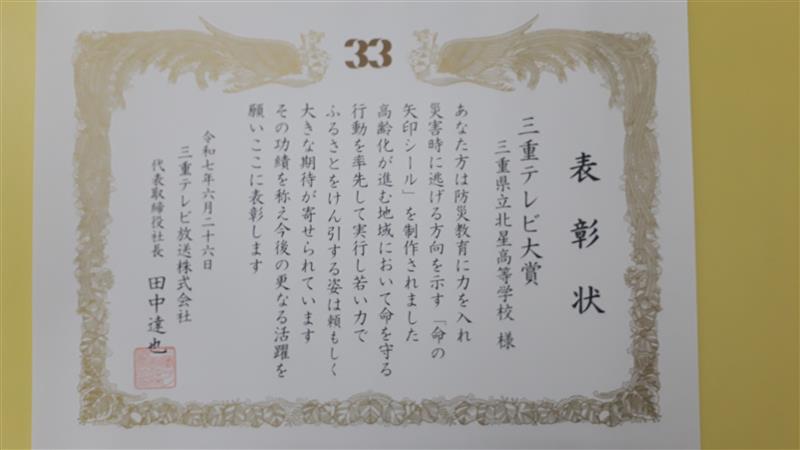 33
表彰状
三重テレビ大賞
三重県立北星高等学校 様
あなた方は防災教育に力を入れ
災害時に逃げる方向を示す「命の
矢印シール」を制作されました
高齢化が進む地域において命を守る
行動を率先して実行し若い力で
ふるさとをけん引する姿は頼もしく
大きな期待が寄せられています
その功績を称え今後の更なる活躍を
願いここに表彰します
令和七年六月二十六日
三重テレビ放送株式会社
代表取締役社長 田中達也